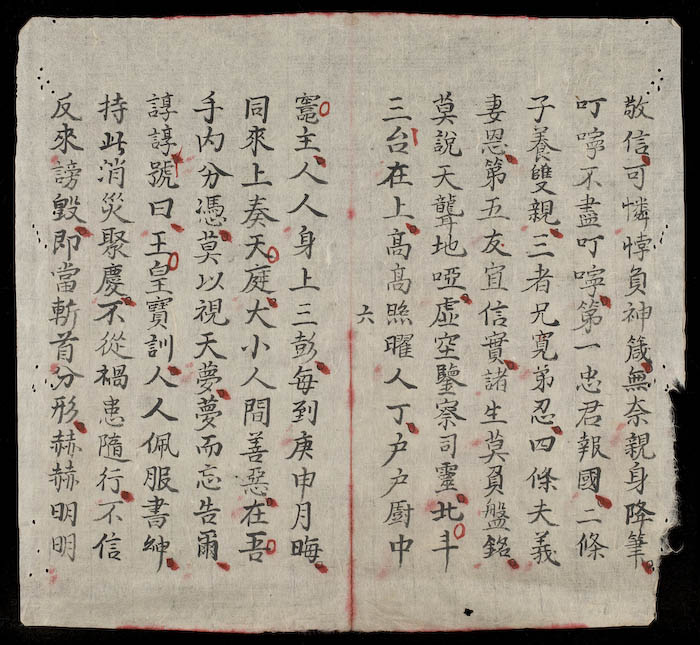 敬信可憐悖負神箴無奈親身降筆
叮嚀不盡叮嚀第一忠君報國二條
子養雙親三者兄寬弟忍四條夫義
妻恩第五友宜信實諸生莫負盤銘
莫說天聾地啞虛空鑒察司靈北斗
三台在上高高照曜人丁户户厨中
六
竈主人人身上三彭每到庚申月晦
同來上奏天庭大小人間善惡在吾
手内分憑莫以視天夢夢而忘告爾
諄諄號曰玉皇寶訓人人佩服書紳
持此消災聚慶不從禍患隨行不信
反來謗毀即當斬首分形赫赫明明